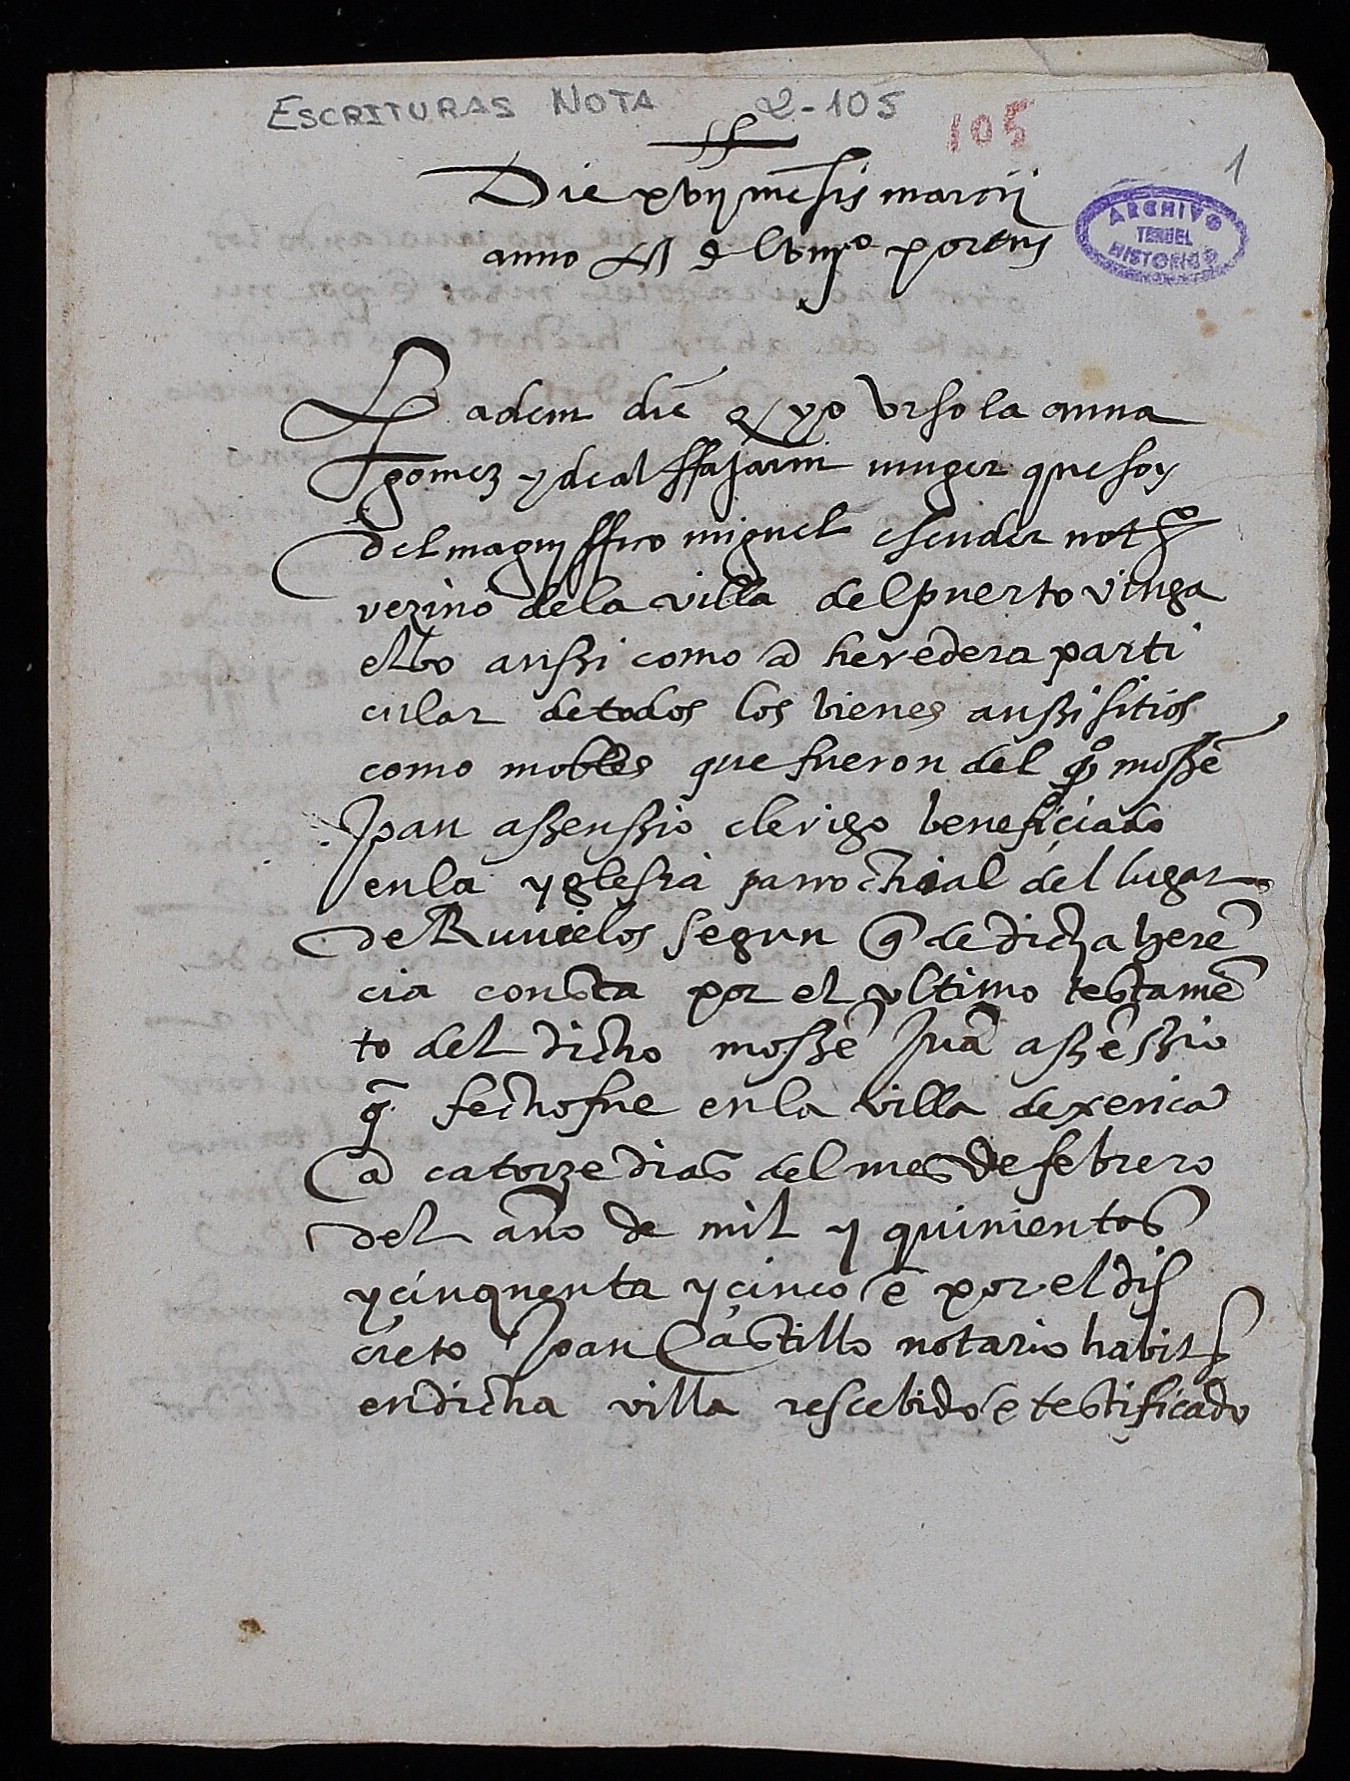 ESCRITURAS NOTA 2-105
105
1
ARCHIVO
TERUEL
HISTORICO
Die xvij mẽsis marcij
anno M d lviijº portus
Eadem die q yo Ursola anna
gomez y de al ffajarin muger que soy
del magniffico miguel esender notº
vezino de la villa del puerto vinga
elbo anssi como a heredera parti
cular de todos los bienes anssi sitios
como mobles que fueron del qº mossẽ
Joan assenssio clerigo beneficiado
en la yglesia parrochial del lugar
de Ruuielos segun q̃ de dicha herẽ
cia consta por el vltimo testamẽ
to del dicho mossẽ Juã assẽssio
q̃ fecho fue en la villa de xerica
a catorze dias del mes de febrero
del año de mil y quinientos
y cinquenta y cinco e por el dis
creto Joan Castillo notario habitᵗ
en dicha villa rescebido e testificado